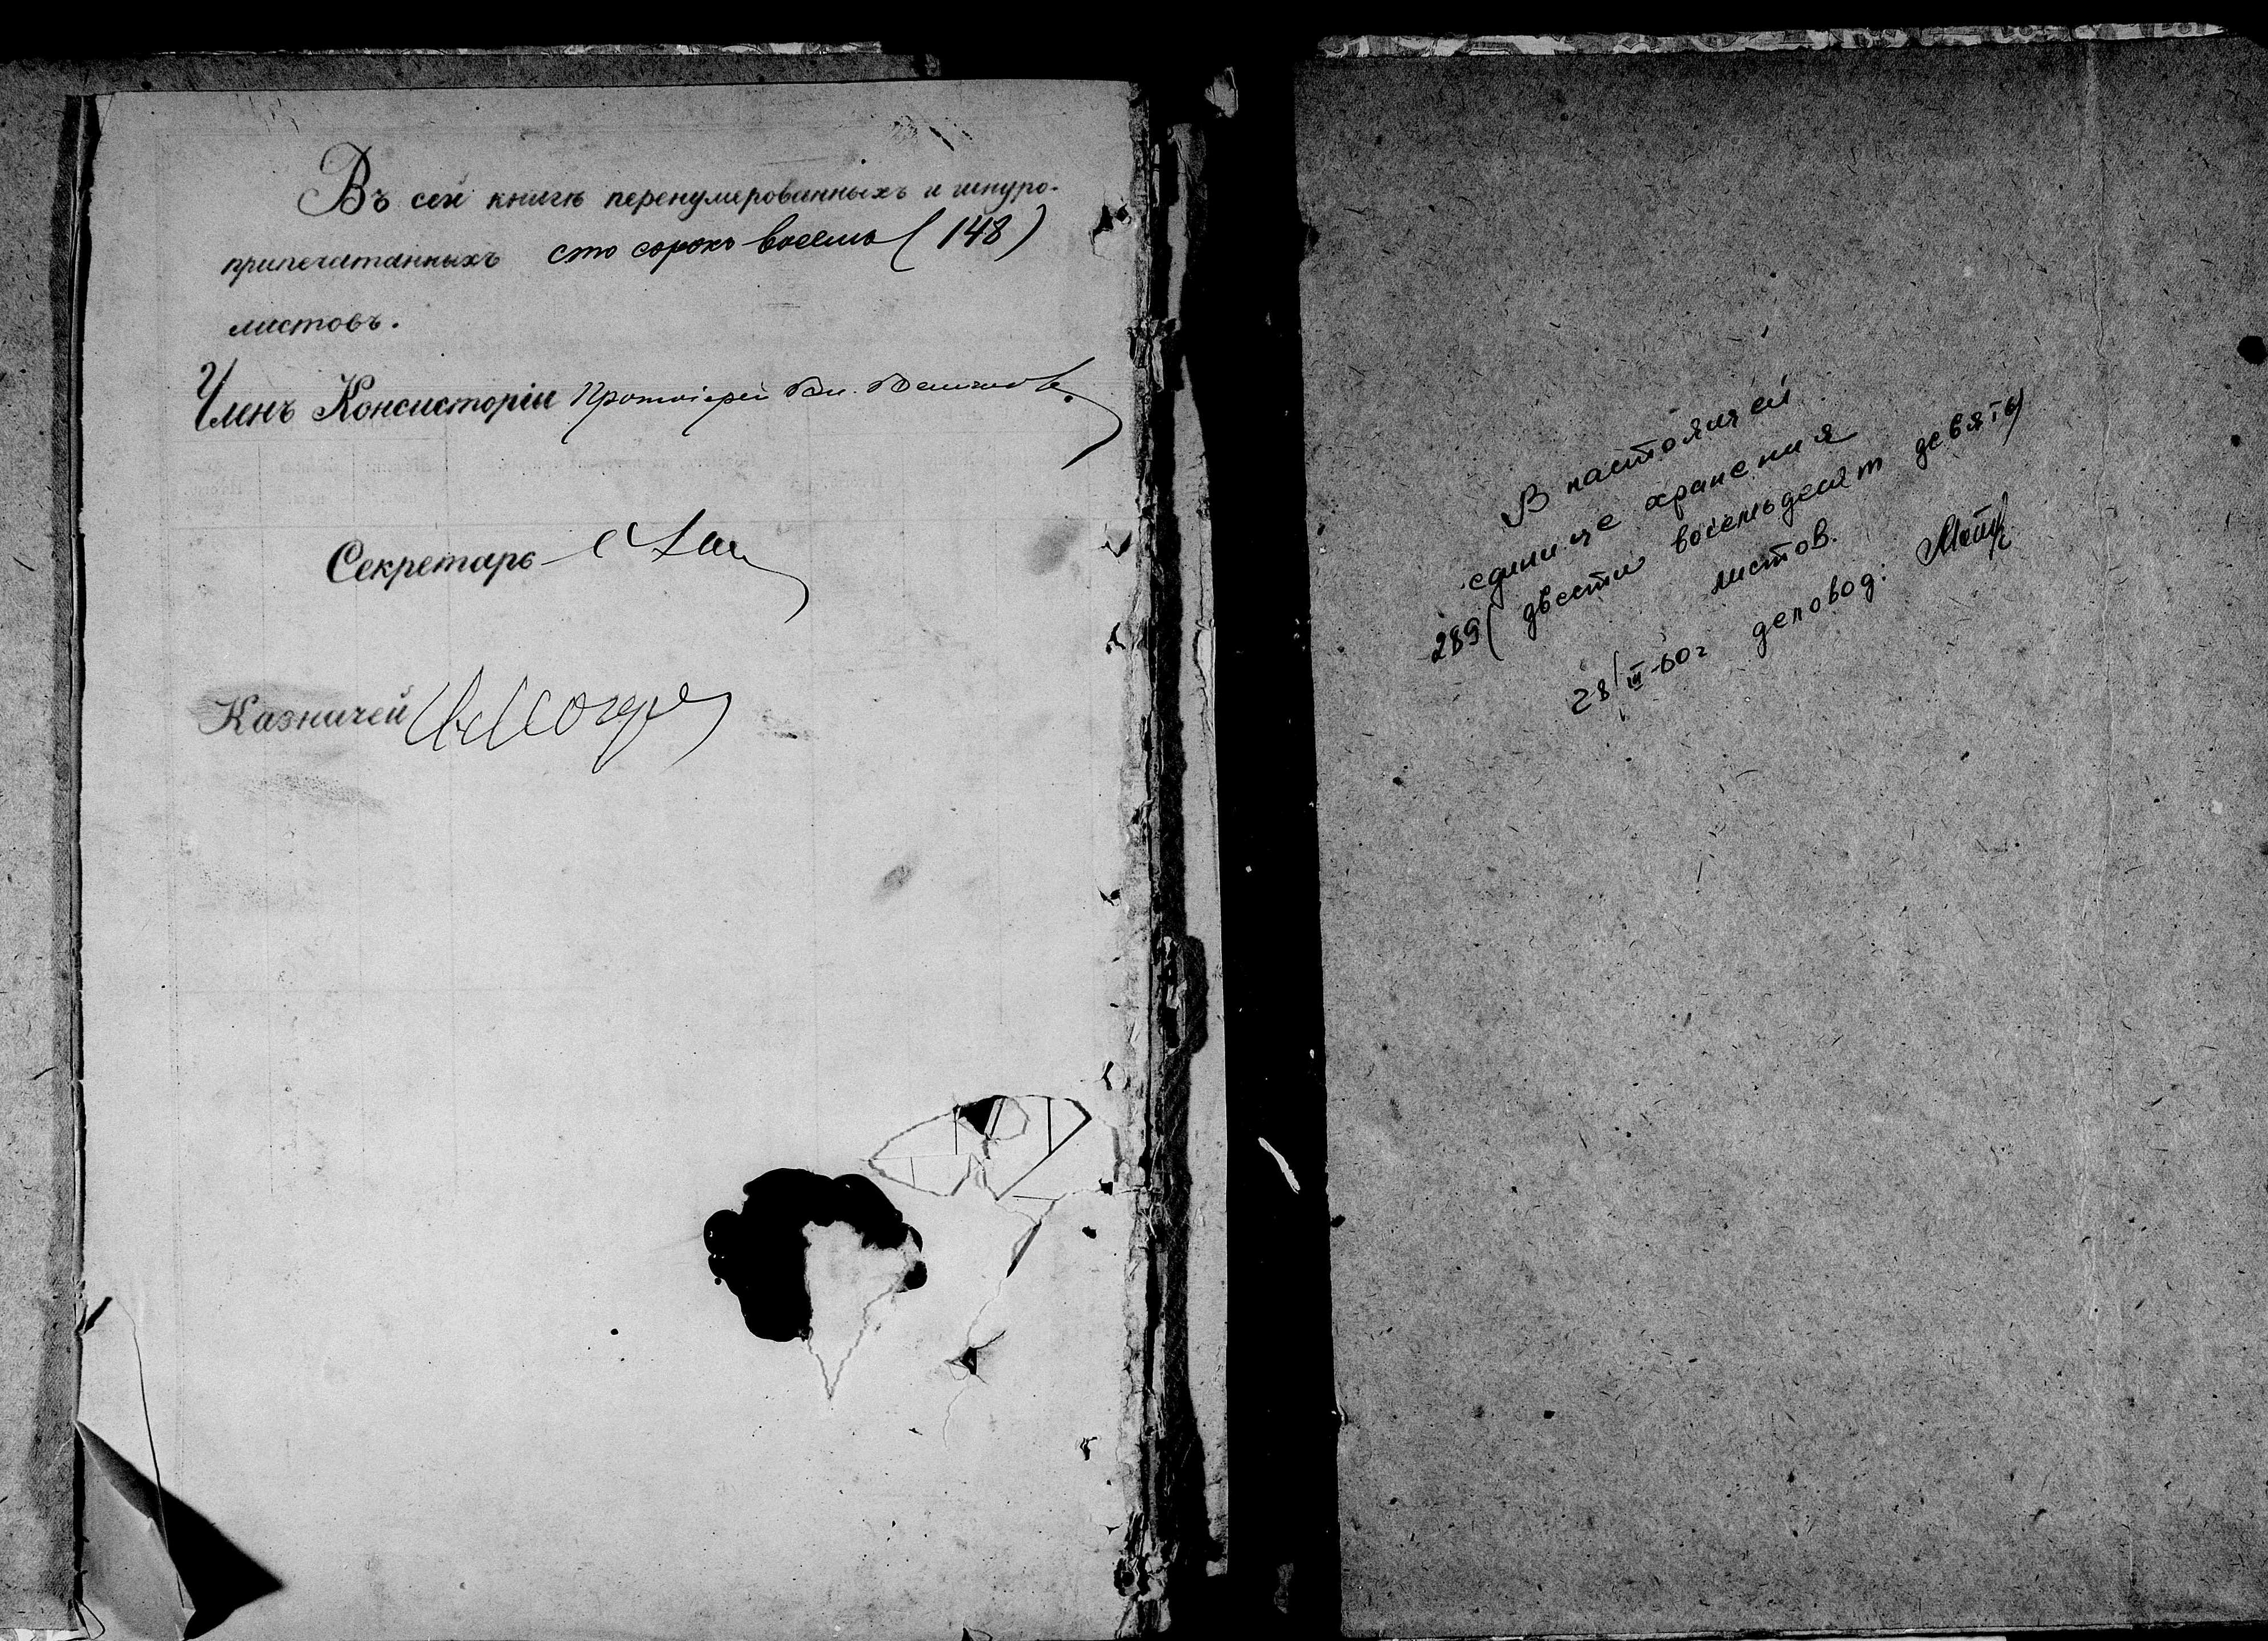 Въ сей книгѣ перенумерованныхъ и шнуро-
припечатанныхъ сто сорокъ восемь (148)
листовъ.
Членъ Консисторіи Протоіерей
Секретарь
Казначей
В настоящей
единице хранения
289 (двести восемьдесят девять)
листов.
28/III-60г деловод: